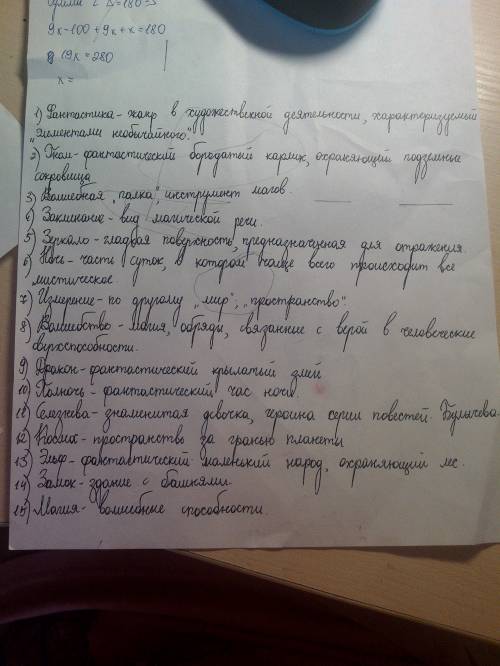 9x-100+9x+x=180
19x=280
x=
1) Фантастика - жанр в художественной деятельности, характеризуемый
"элементами необычайного".
2) Гном - фантастический бородатый карлик, охраняющий подземные
сокровища
3) Волшебная "палка", инструмент магов.
4) Заклинание - вид магической речи.
5) Зеркало - гладкая поверхность, предназначенная для отражения.
6) Ночь - часть суток, в котором чаще всего происходит все
мистическое.
7) Измерение - по другому "мир", "пространство".
8) Волшебство - магия, обряды, связанные с верой в человеческие
сверхспособности.
9) Дракон - фантастический крылатый змей
10) Полночь - фантастический час ночи.
11) Селезнева - знаменитая девочка, героиня серии повестей Булычева.
12) Космос - пространство за гранью планеты
13) Эльф - фантастический маленький народ, охраняющий лес.
14) Замок - здание с башнями.
15) Магия - волшебные способности.